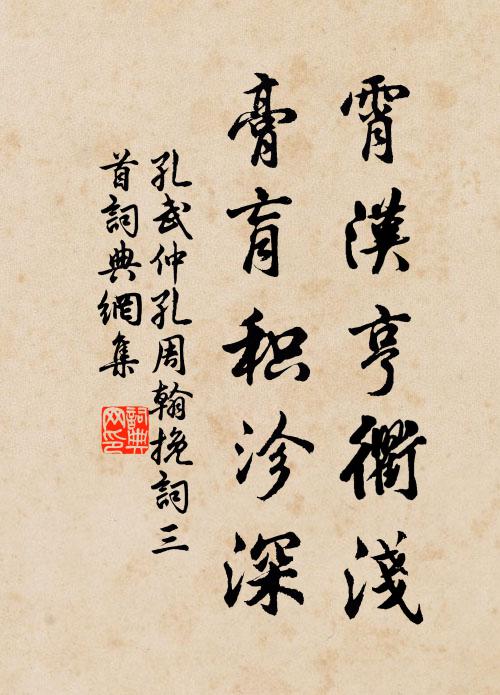 霄漢亨衢淺
膏肓积沴深
孔武仲孔周翰挽詞三
首詞典網集
詞典
网印